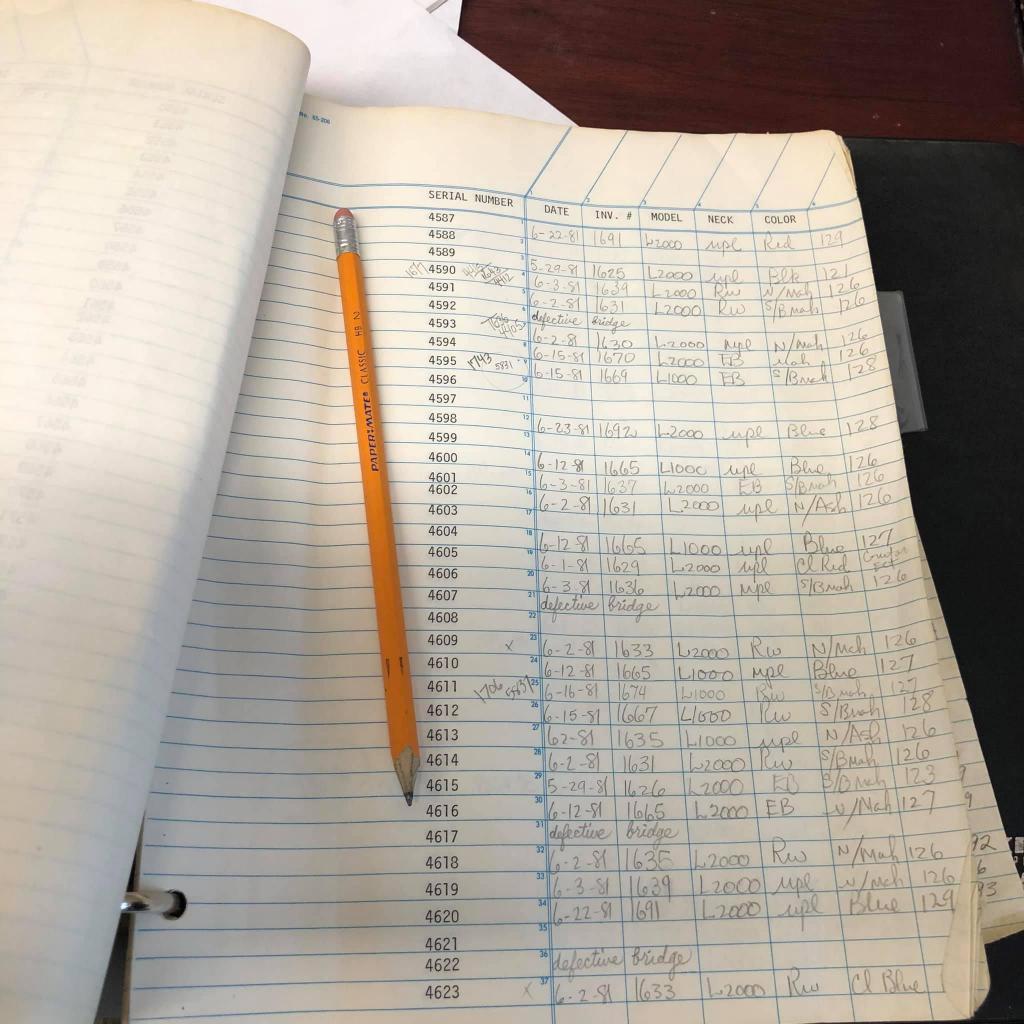 No. 65-206
SERIAL NUMBER DATE INV. # MODEL NECK COLOR
4587
4588 6-22-81 1691 L2000 mpl Red 129
4589
4590 5-29-81 1625 L2000 mpl Blk 121
4591 6-3-81 1639 L2000 Rw N/Mah 126
4592 6-2-81 1631 L2000 Rw S/Bmah 126
4593 defective bridge
4594 6-2-81 1630 L2000 Mpl N/Mah 126
4595 1743 5831 6-15-81 1670 L2000 EB mah 126
4596 6-15-81 1669 L1000 EB S/Bmah 128
4597
4598
4599 6-23-81 1692 L2000 mpl Blue 128
4600
4601 6-12-81 1665 L1000 mpl Blue 126
4602 6-3-81 1637 L2000 EB S/Bmah 126
4603 6-2-81 1631 L2000 mpl N/Ash 126
4604
4605 6-12-81 1665 L1000 mpl Blue 127
4606 6-1-81 1629 L2000 mpl Cl Red
4607 6-3-81 1636 L2000 Mpl S/Bmah 126
defective bridge
4608
4609 x 6-2-81 1633 L2000 Rw N/Mah 126
4610 6-12-81 1665 L1000 mpl Blue 127
4611 1706 5837 6-16-81 1674 L1000 Rw S/Bmah 127
4612 6-15-81 1667 L1000 Rw S/Bmah 128
4613 62-81 1635 L1000 mpl N/Ash 126
4614 6-2-81 1631 L2000 Rw S/Bmah 126
4615 5-29-81 1626 L2000 EB S/Bmah 123
4616 6-12-81 1665 L2000 EB N/Mah 127
4617 defective bridge
4618 6-2-81 1635 L2000 Rw N/Mah 126
4619 6-3-81 1639 L2000 mpl N/mah 126
4620 6-22-81 1691 L2000 mpl Blue 129
4621
4622 defective bridge
4623 x 6-2-81 1633 L2000 Rw Cl Blue
PAPER:MATE® CLASSIC HB 2